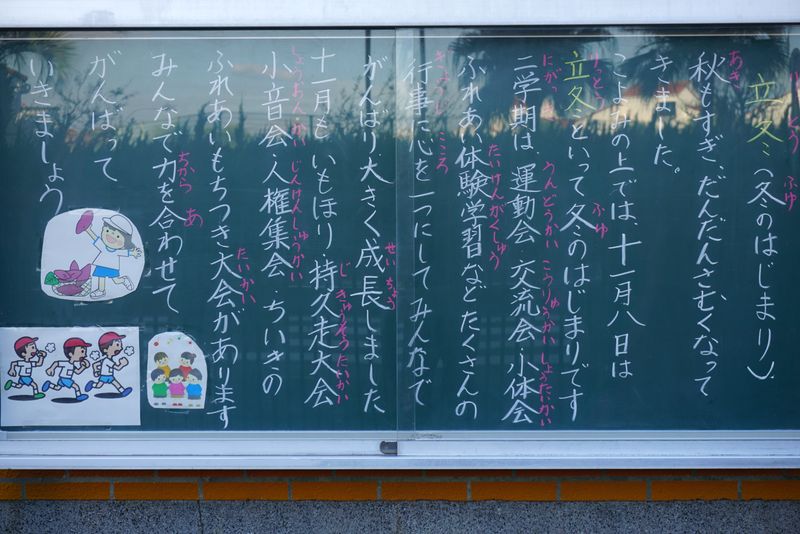 立冬(冬のはじまり)
秋もすぎ、だんだんさむくなって
きました。
こよみの上では、十一月八日は
立冬といって冬のはじまりです
二学期は、運動会・交流会・小体会
ふれあい体験学習などたくさんの
行事に心を一つにしてみんなで
がんばり大きく成長しました
十一月も いもほり 持久走大会
小音会・人権集会・ちいきの
ふれあいもちつき大会があります
みんなで力を合わせて
がんばって
いきましょう